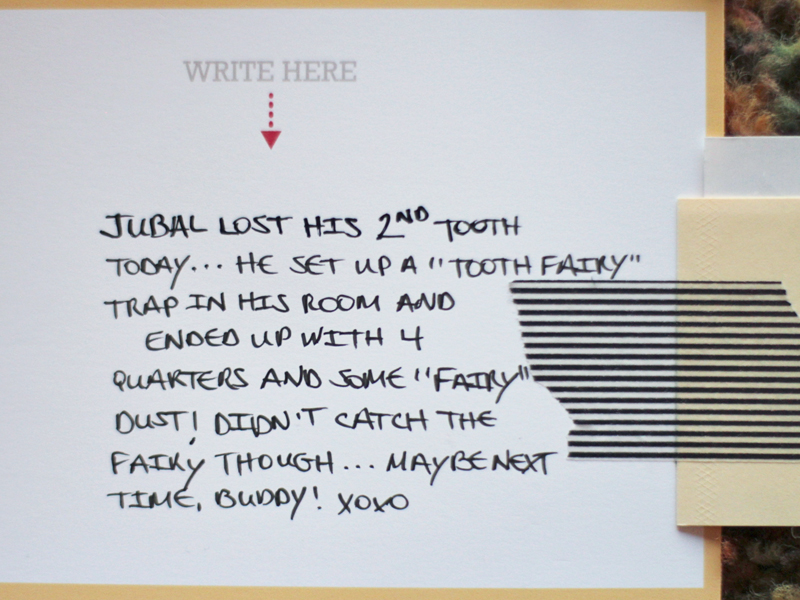 WRITE HERE
JUBAL LOST HIS 2ND TOOTH
TODAY... HE SET UP A "TOOTH FAIRY"
TRAP IN HIS ROOM AND
ENDED UP WITH 4
QUARTERS AND SOME "FAIRY"
DUST! DIDN'T CATCH THE
FAIRY THOUGH... MAYBE NEXT
TIME, BUDDY! XOXO